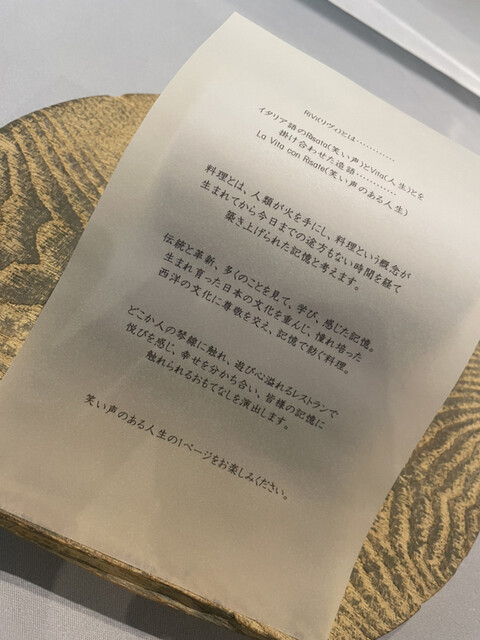 RiVi(リヴィ)とは…………
イタリア語のRisata(笑い声)とVita(人生)とを
掛け合わせた造語…………
La Vita con Risate(笑い声のある人生)
料理とは、人類が火を手にし、料理という概念が
生まれてから今日までの途方もない時間を経て
築き上げられた記憶と考えます。
伝統と革新、多くのことを見て、学び、感じた記憶。
生まれ育った日本の文化を重んじ、憧れ培った
西洋の文化に尊敬を交え、記憶で紡ぐ料理。
どこか人の琴線に触れ、遊び心溢れるレストランで
悦びを感じ、幸せを分かち合い、皆様の記憶に
触れられるおもてなしを演出します。
笑い声のある人生の1ページをお楽しみください。